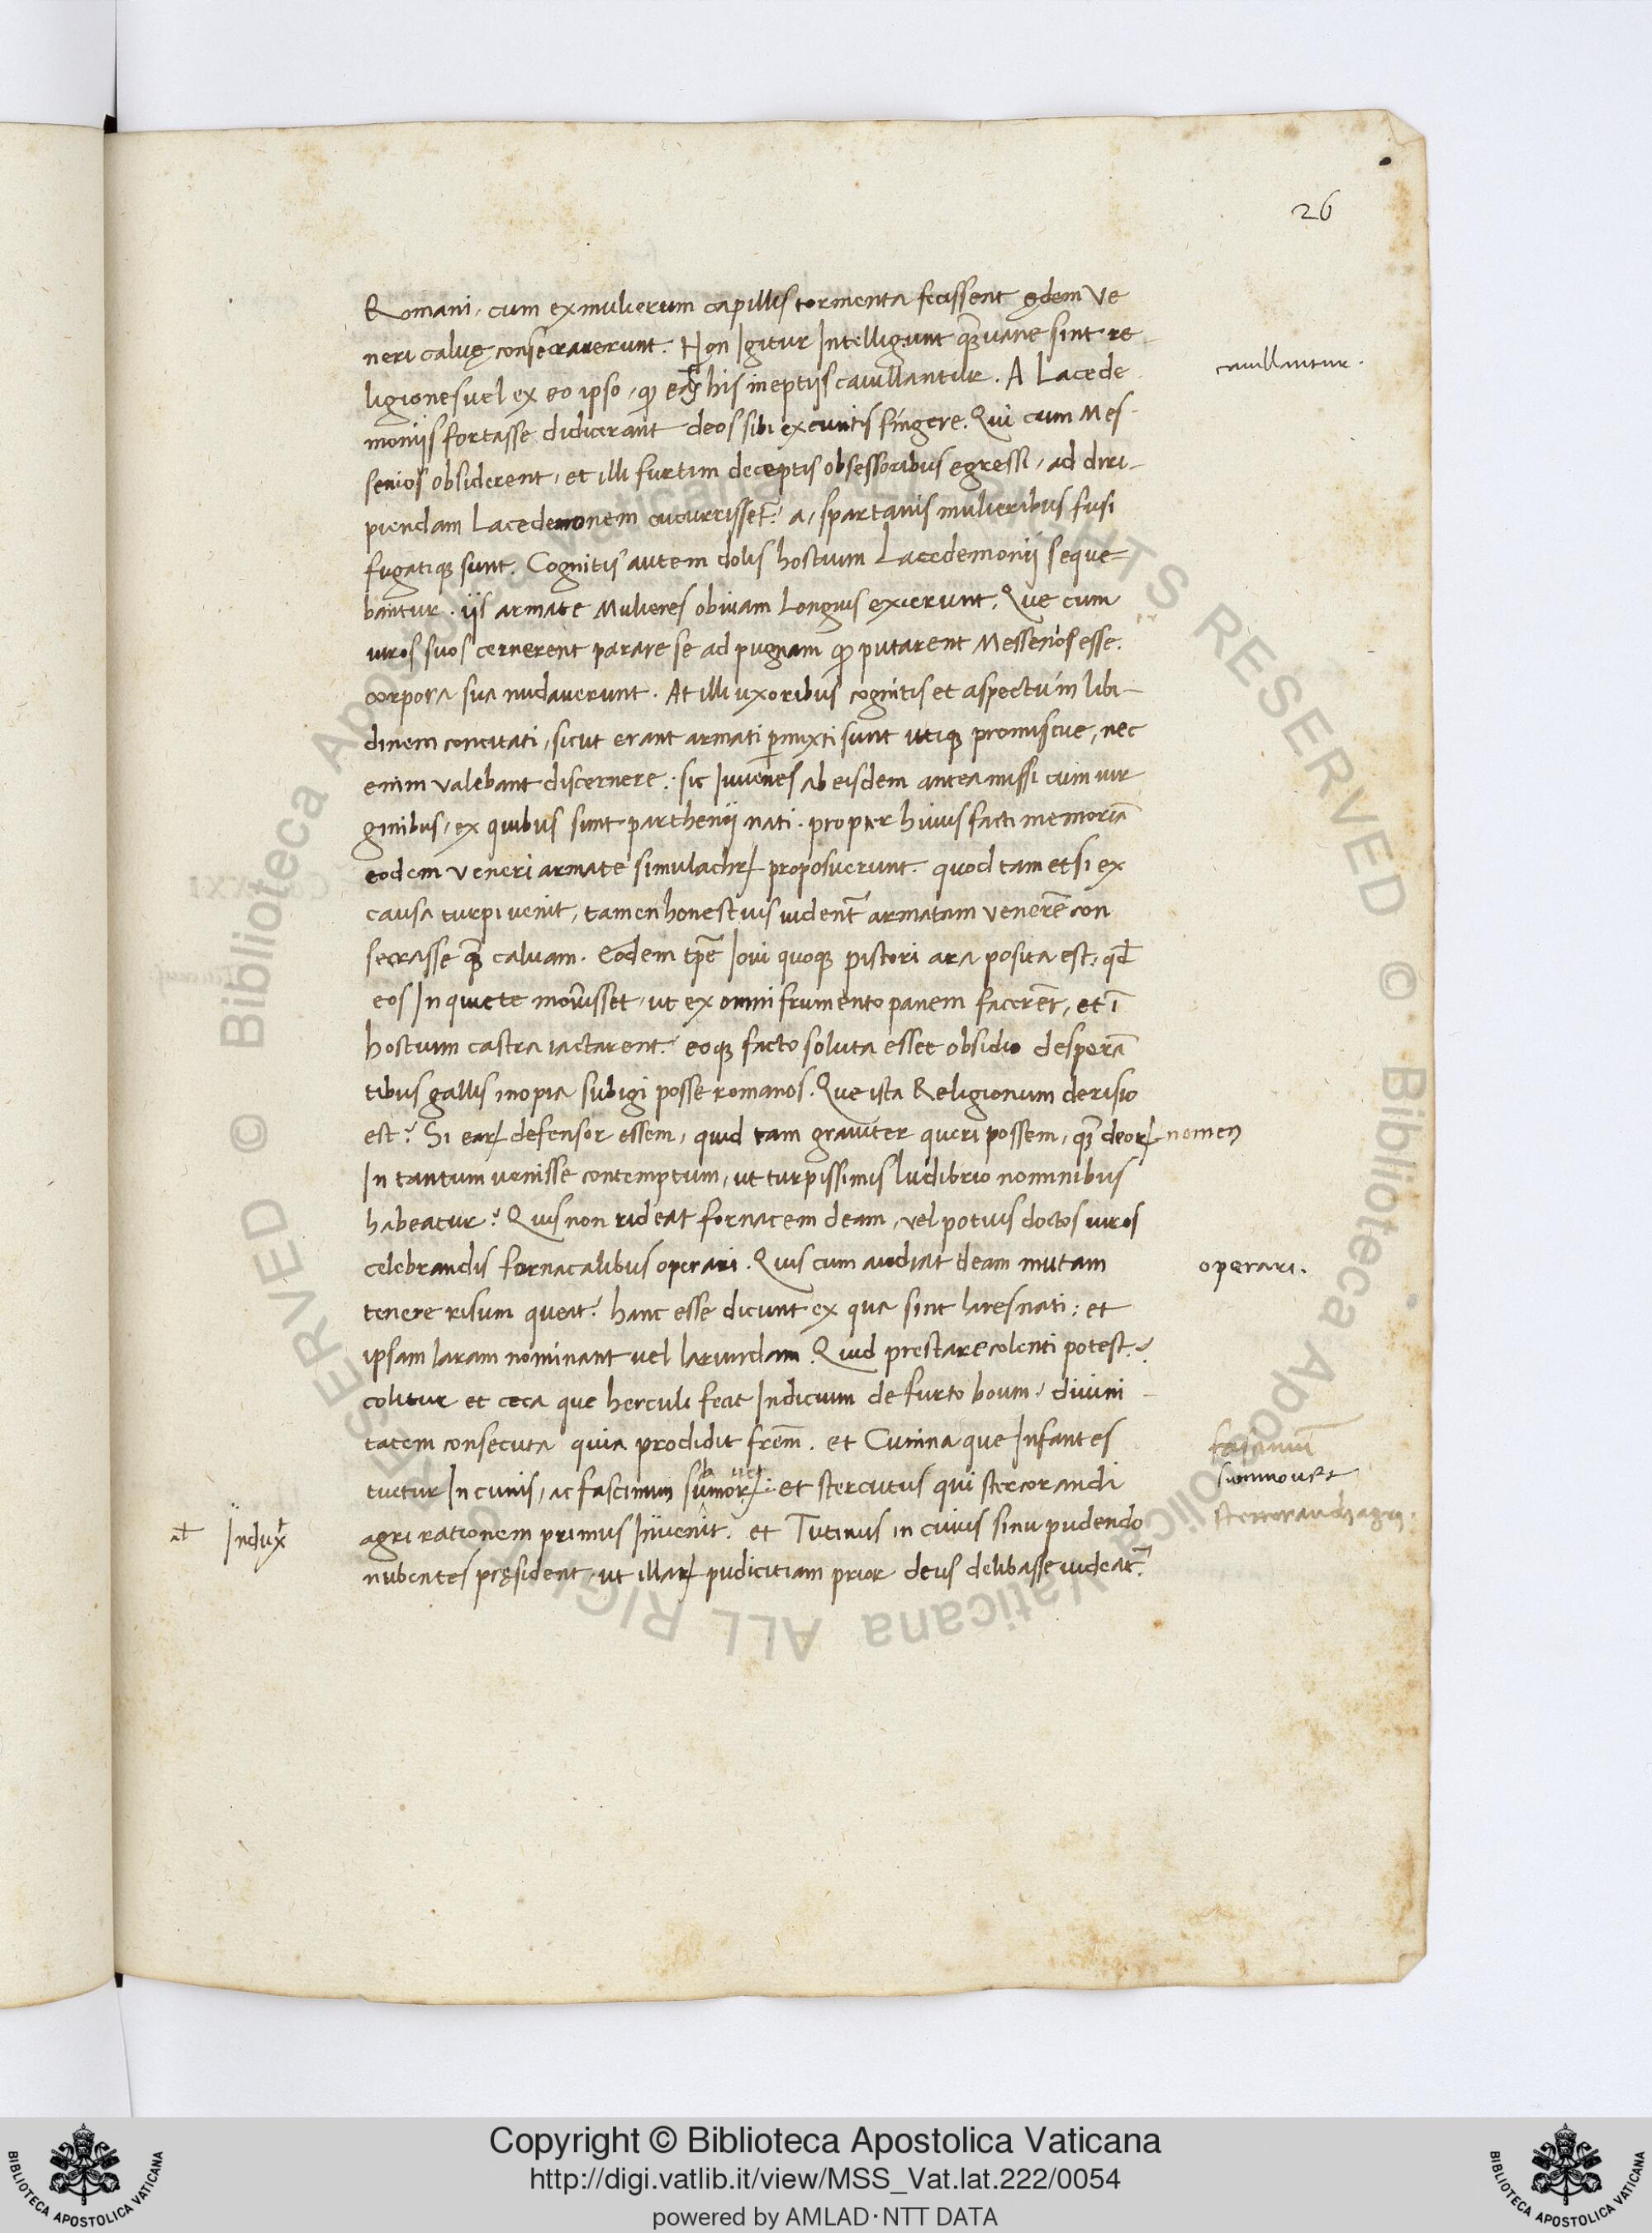 26
Romani, cum ex mulierum capillis tormenta fecissent ędem Ve
neri caluę consecrauerunt. Non Igitur Intelligunt quā uane sint re
ligiones uel ex eo ipso, quod eas his ineptijs cauillantur. A Lacede
cauillantur.
monijs fortasse didicerant deos sibi ex euntis fingere. Qui cum Mes-
senios obsiderent, et illi furtim deceptis obsessoribus egressi, ad diri-
piendam Lacedemonem cucurrisset̄: a, spartanis mulieribus fusi
fugatiqȝ sunt. Cognitis autem dolis hostium Lacedemonij seque-
bantur. ijs armate Mulieres obuiam Longius exierunt. Que cum
uiros suos cernerent parare se ad pugnam quod putarent Messenios esse:
corpora sua nudauerunt. At illi uxoribus cognitis et aspectu in libi-
dinem concitati, sicut erant armati pmixti sunt utiqȝ promiscue, nec
enim valebant discernere. sic Iuuenes ab eisdem antea missi cum uir
ginibus, ex quibus sunt parthenij nati. propter huius facti memoriā
eodem veneri armate simulachrꝝ proposuerunt. quod tam etsi ex
causa turpi uenit, tamen honestius uident̄ armatam venerē con
secrasse quā caluam. Eodem tpe Ioui quoqȝ pistori ara posita est: qd
eos In quiete monuisset, ut ex omni frumento panem facerēt, et ī
hostium castra iactarent: eoqȝ facto soluta esset obsidio desperā
tibus gallis inopia subigi posse romanos. Que ista Religionum derisio
est? Si earꝝ defensor essem, quid tam grauiter queri possem, quā deorꝝ nomen
In tantum uenisse contemptum, ut turpissimis ludibrio nominibus
habeatur? Quis non rideat fornacem deam, vel potius doctos uiros
celebrandis fornacalibus operari. Quis cum audiat deam mutam
operari.
tenere risum queat? hanc esse dicunt ex qua sint lares nati: et
ipsam laram nominant uel larundam. Quid prestare colenti potest?
colitur et ceca que herculi fecit Indicium de furto boum, diuini-
tatem consecuta quia prodidit frem̄. et Cunina que Infantes
tuetur In cunis, ac fascinum sumorꝝ: et stercutus qui stercorandi
summouet
stercorandi agri.
agri rationem primus Inuenit. et Tutinus in cuius sinu pudendo
at Induxt
nubentes pręsident, ut illarꝝ pudicitiam prior deus delibasse uideat̄.
Copyright © Biblioteca Apostolica Vaticana
http://digi.vatlib.it/view/MSS_Vat.lat.222/0054
powered by AMLAD·NTT DATA
BIBLIOTECA APOSTOLICA VATICANA
BIBLIOTECA APOSTOLICA VATICANA
© Biblioteca Apostolica Vaticana ALL RIGHTS RESERVED © Biblioteca Apostolica Vaticana ALL RIGHTS RESERVED